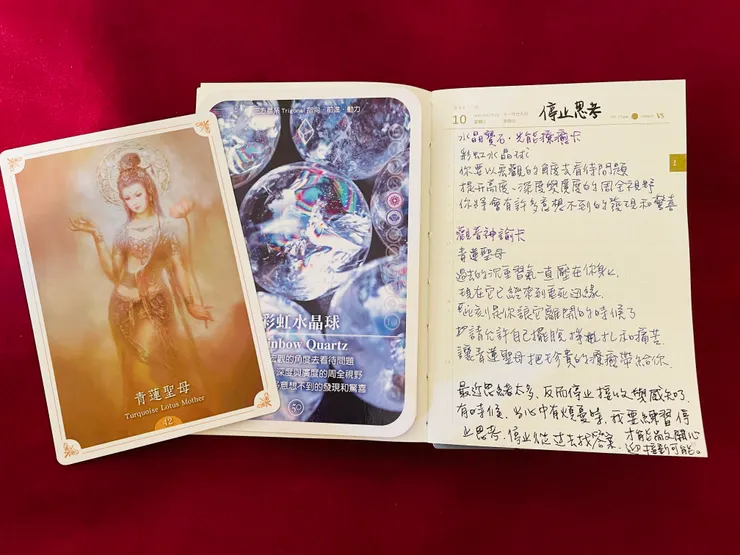 青蓮聖母
Turquoise Lotus Mother
42
Trigonal 指向·前進·動力
彩虹水晶球
inbow Quartz
宏觀的角度去看待問題
深度與廣度的周全視野
意想不到的發現和驚喜
50
10
停止思考
VS
水晶寶石·光能療癒卡
彩虹水晶球:
你要以宏觀的角度去看待問題
提升高度、深度與廣度的周全視野
你將會有許多意想不到的發現和驚喜
觀音神諭卡
青蓮聖母
過去的沉重習氣一直壓在你身上,
現在它已經來到垂死邊緣,
此刻是你讓它離開的時候了
請允許自己擺脫掙扎和痛苦
讓青蓮聖母把珍貴的療癒帶給你.
最近思緒太多、反而停止接收與感知了.
有時候、當心中有煩憂時、我要練習停
止思考、停止從過去找答案、才能敞開心
迎接新可能。